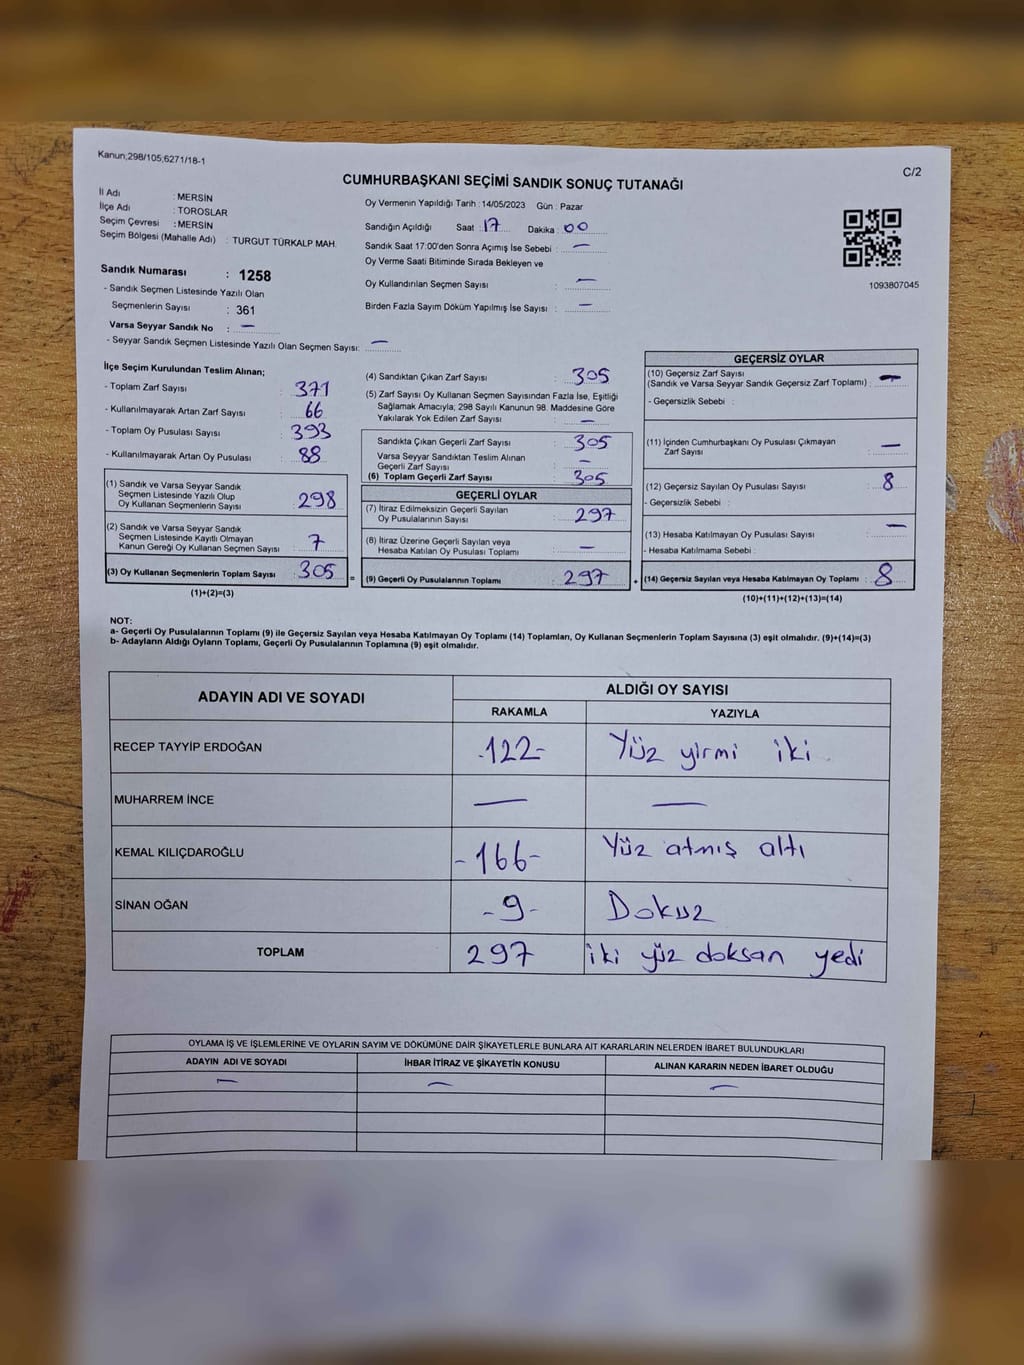 Kanun;298/105;6271/18-1
C/2
CUMHURBAŞKANI SEÇİMİ SANDIK SONUÇ TUTANAĞI
İl Adı : MERSİN
İlçe Adı : TOROSLAR
Seçim Çevresi : MERSİN
Seçim Bölgesi (Mahalle Adı) : TURGUT TÜRKALP MAH.
Sandık Numarası : 1258
- Sandık Seçmen Listesinde Yazılı Olan
Seçmenlerin Sayısı : 361
Varsa Seyyar Sandık No : —
- Seyyar Sandık Seçmen Listesinde Yazılı Olan Seçmen Sayısı: —
Oy Vermenin Yapıldığı Tarih : 14/05/2023 Gün : Pazar
Sandığın Açıldığı Saat : 17 Dakika : 00
Sandık Saat 17:00'den Sonra Açımış İse Sebebi : —
Oy Verme Saati Bitiminde Sırada Bekleyen ve
Oy Kullandırılan Seçmen Sayısı : —
Birden Fazla Sayım Döküm Yapılmış İse Sayısı : —
1093807045
İlçe Seçim Kurulundan Teslim Alınan;
- Toplam Zarf Sayısı : 371
- Kullanılmayarak Artan Zarf Sayısı : 66
- Toplam Oy Pusulası Sayısı : 393
- Kullanılmayarak Artan Oy Pusulası : 88
(1) Sandık ve Varsa Seyyar Sandık
Seçmen Listesinde Yazılı Olup
Oy Kullanan Seçmenlerin Sayısı : 298
(2) Sandık ve Varsa Seyyar Sandık
Seçmen Listesinde Kayıtlı Olmayan
Kanun Gereği Oy Kullanan Seçmen Sayısı : 7
(3) Oy Kullanan Seçmenlerin Toplam Sayısı : 305
(1)+(2)=(3)
(4) Sandıktan Çıkan Zarf Sayısı : 305
(5) Zarf Sayısı Oy Kullanan Seçmen Sayısından Fazla İse, Eşitliği
Sağlamak Amacıyla; 298 Sayılı Kanunun 98. Maddesine Göre
Yakılarak Yok Edilen Zarf Sayısı : —
Sandıkta Çıkan Geçerli Zarf Sayısı : 305
Varsa Seyyar Sandıktan Teslim Alınan
Geçerli Zarf Sayısı : —
(6) Toplam Geçerli Zarf Sayısı : 305
GEÇERLİ OYLAR
(7) İtiraz Edilmeksizin Geçerli Sayılan
Oy Pusulalarının Sayısı : 297
(8) İtiraz Üzerine Geçerli Sayılan veya
Hesaba Katılan Oy Pusulası Toplamı : —
= (9) Geçerli Oy Pusulalarının Toplamı : 297
GEÇERSİZ OYLAR
(10) Geçersiz Zarf Sayısı
(Sandık ve Varsa Seyyar Sandık Geçersiz Zarf Toplamı) : —
- Geçersizlik Sebebi :
(11) İçinden Cumhurbaşkanı Oy Pusulası Çıkmayan
Zarf Sayısı : —
(12) Geçersiz Sayılan Oy Pusulası Sayısı : 8
- Geçersizlik Sebebi :
(13) Hesaba Katılmayan Oy Pusulası Sayısı : —
- Hesaba Katılmama Sebebi :
+ (14) Geçersiz Sayılan veya Hesaba Katılmayan Oy Toplamı : 8
(10)+(11)+(12)+(13)=(14)
NOT:
a- Geçerli Oy Pusulalarının Toplamı (9) ile Geçersiz Sayılan veya Hesaba Katılmayan Oy Toplamı (14) Toplamları, Oy Kullanan Seçmenlerin Toplam Sayısına (3) eşit olmalıdır. (9)+(14)=(3)
b- Adayların Aldığı Oyların Toplamı, Geçerli Oy Pusulalarının Toplamına (9) eşit olmalıdır.
ADAYIN ADI VE SOYADI
ALDIĞI OY SAYISI
RAKAMLA YAZIYLA
RECEP TAYYİP ERDOĞAN -122- Yüz yirmi iki
MUHARREM İNCE — —
KEMAL KILIÇDAROĞLU -166- Yüz atmış altı
SİNAN OĞAN -9- Dokuz
TOPLAM 297 iki yüz doksan yedi
OYLAMA İŞ VE İŞLEMLERİNE VE OYLARIN SAYIM VE DÖKÜMÜNE DAİR ŞİKAYETLERLE BUNLARA AİT KARARLARIN NELERDEN İBARET BULUNDUKLARI
ADAYIN ADI VE SOYADI İHBAR İTİRAZ VE ŞİKAYETİN KONUSU ALINAN KARARIN NEDEN İBARET OLDUĞU
— — —